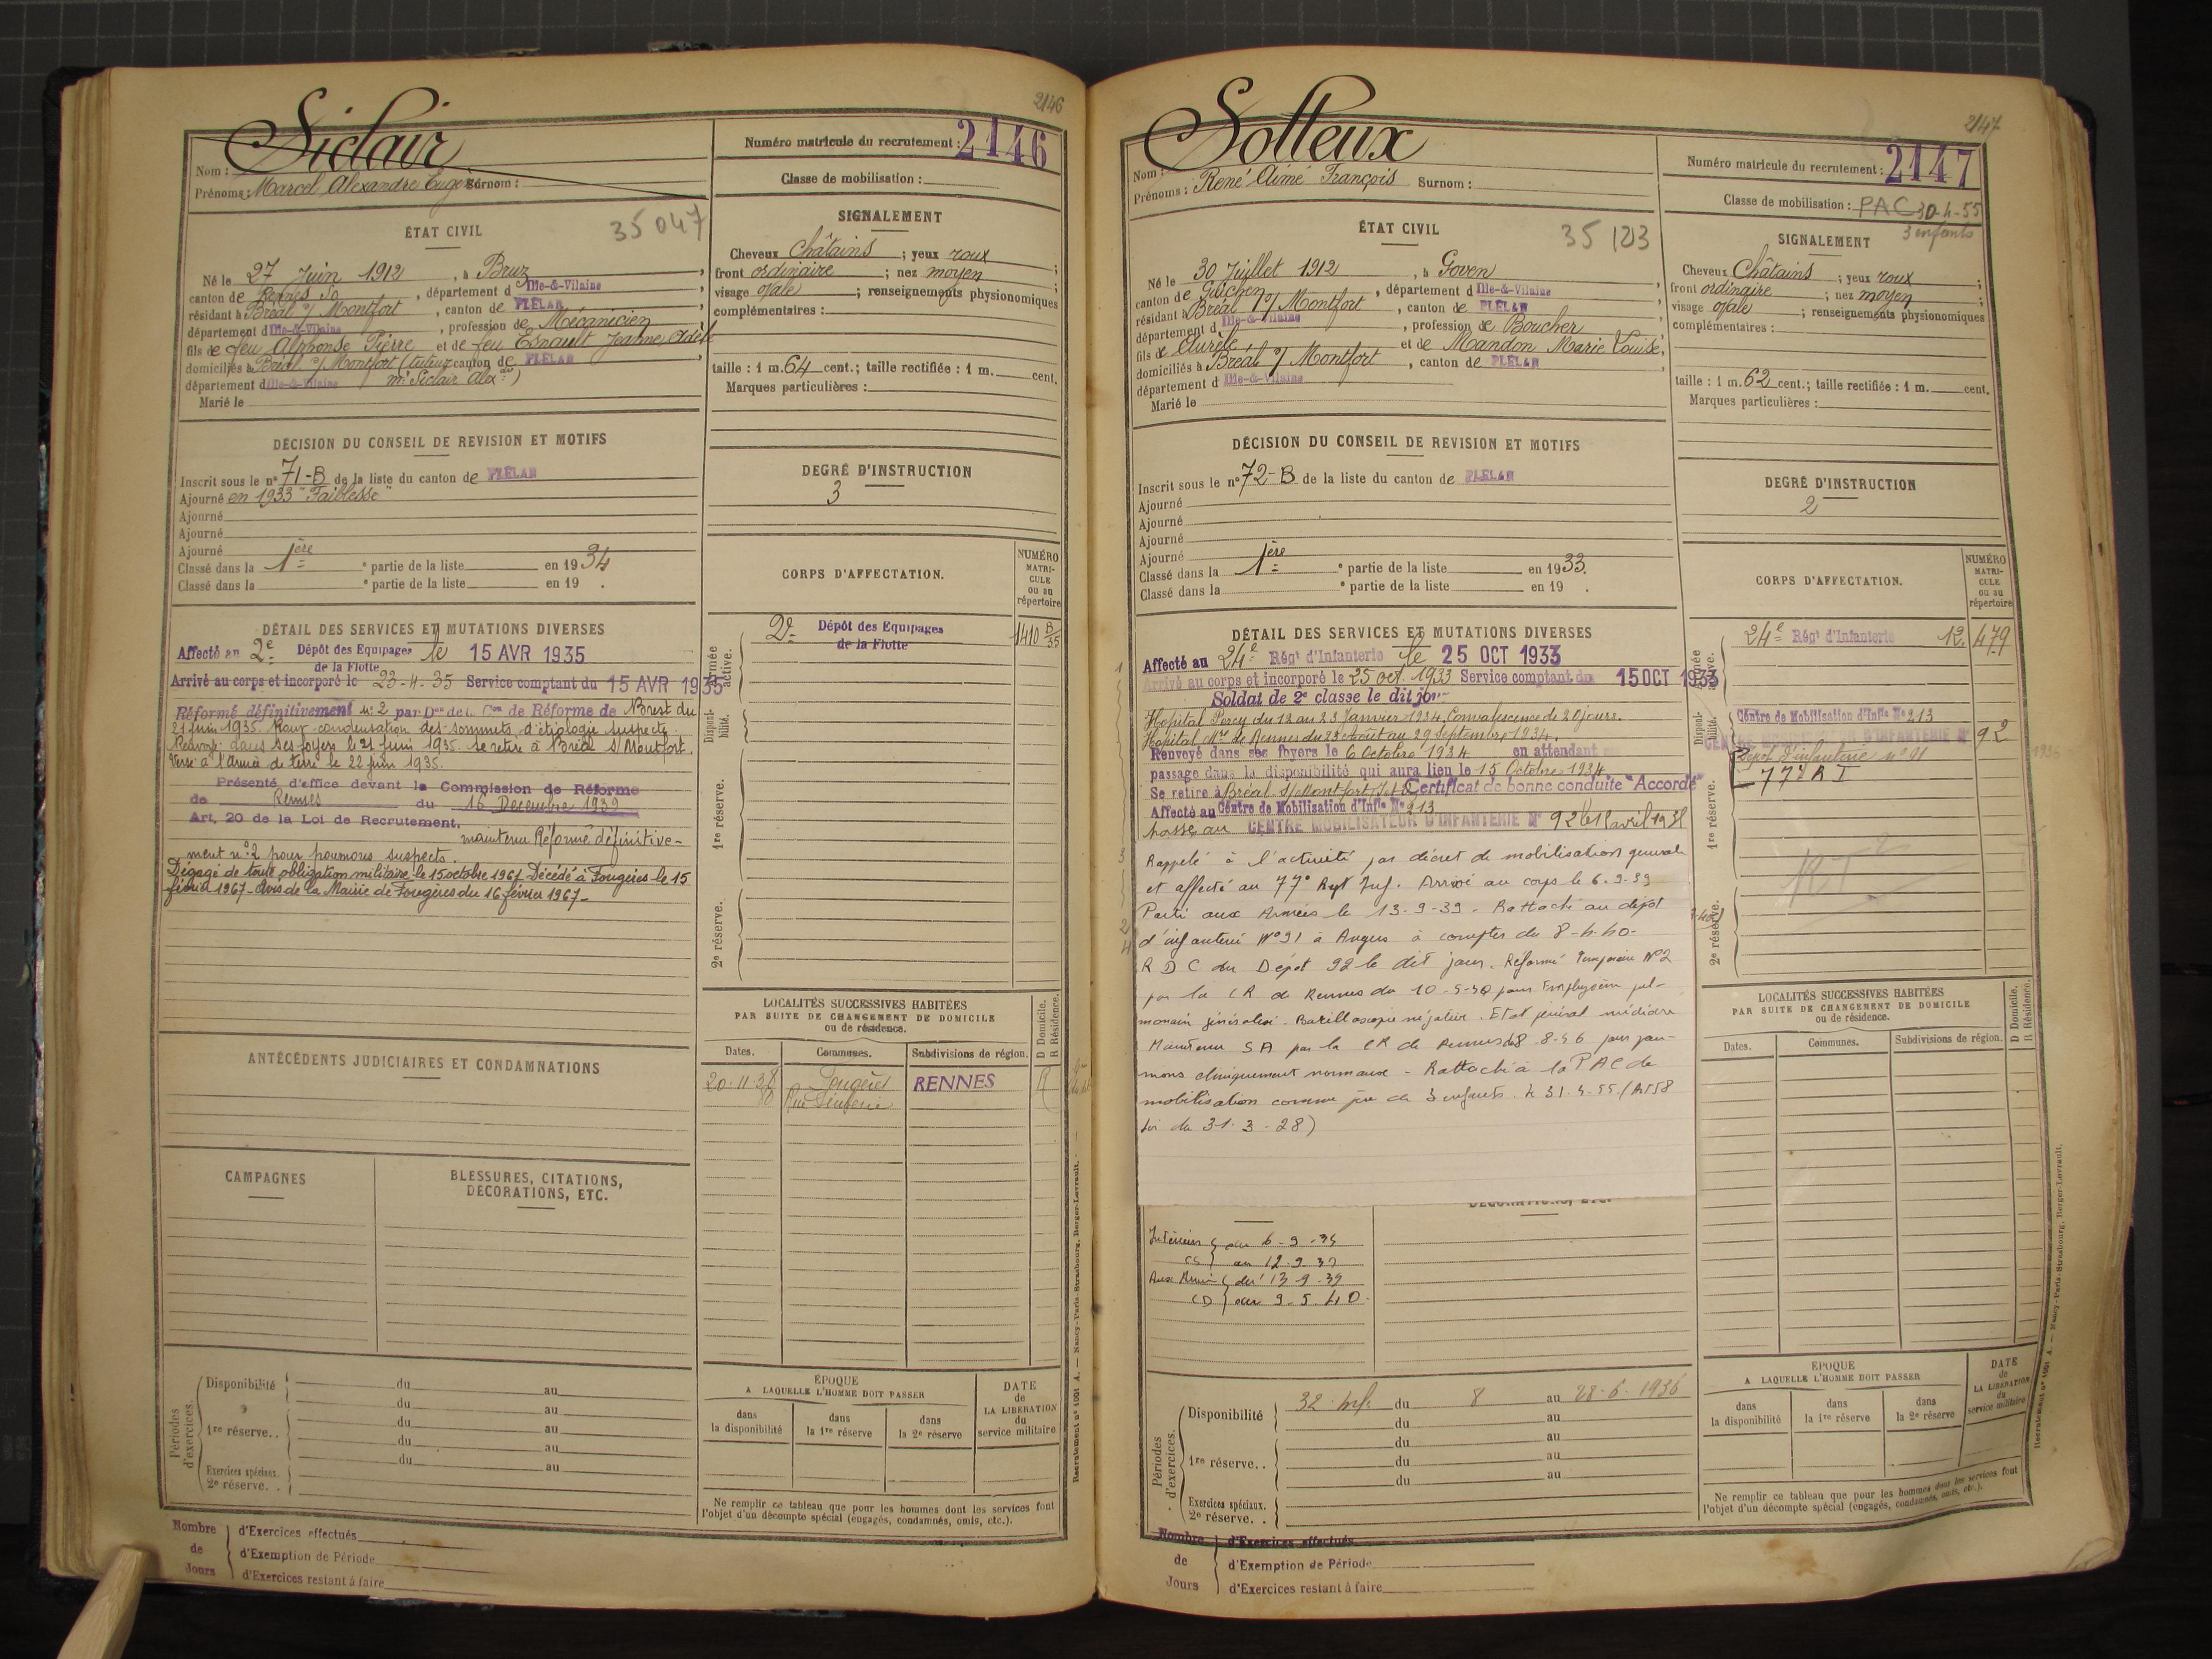 2146
Siclair
Nom :
Prénoms : Marcel Alexandre Eugène Surnom :
Numéro matricule du recrutement : 2146
Classe de mobilisation :
ÉTAT CIVIL
35047
Né le 27 Juin 1912, à Bruz,
canton de Rennes So, département d Ille-&-Vilaine
résidant à Bréal s/ Montfort, canton de PLÉLAN
département d Ille-&-Vilaine, profession de Mécanicien
fils de feu Alphonse Pierre et de feu Esnault Jeanne Adèle
domiciliés à Bréal s/ Montfort (tuteur canton de PLÉLAN,
département d Ille-&-Vilaine mr Siclair Alexdre)
Marié le
SIGNALEMENT
Cheveux châtains ; yeux roux ;
front ordinaire ; nez moyen ;
visage ovale ; renseignements physionomiques
complémentaires :
taille : 1 m. 64 cent.; taille rectifiée : 1 m. cent.
Marques particulières :
DÉCISION DU CONSEIL DE REVISION ET MOTIFS
Inscrit sous le n° 71-B de la liste du canton de PLÉLAN
Ajourné en 1933 "Faiblesse"
Ajourné
Ajourné
Ajourné
Classé dans la 1ère e partie de la liste en 1934
Classé dans la e partie de la liste en 19 .
DEGRÉ D'INSTRUCTION
3
CORPS D'AFFECTATION.
NUMÉRO
MATRI-
CULE
ou au
répertoire
Armée active.
2e Dépôt des Equipages
de la Flotte
1410 B/35
Disponi-bilité.
1re réserve.
2e réserve.
DÉTAIL DES SERVICES ET MUTATIONS DIVERSES
Affecté au 2e Dépôt des Equipages le 15 AVR 1935
de la Flotte
Arrivé au corps et incorporé le 23-4-35 Service comptant du 15 AVR 1935
Réformé définitivement n° 2 par Don de la Con de Réforme de Brest du
21 juin 1935. Pour condensation des sommets d'étiologie suspecte.
Renvoyé dans ses foyers le 21 juin 1935. Se retire à Bréal s/ Montfort.
Versé à l'Armée de terre le 22 juin 1935.
Présenté d'office devant la Commission de Réforme
de Rennes du 16 Decembre 1939
Art. 20 de la Loi de Recrutement.
maintenu Réformé définitive-
ment n° 2 pour poumons suspects.
Dégagé de toute obligation militaire le 15 octobre 1961 Décédé à Fougères le 15
février 1967 - Avis de la Mairie de Fougères du 16 février 1967 -
ANTÉCÉDENTS JUDICIAIRES ET CONDAMNATIONS
LOCALITÉS SUCCESSIVES HABITÉES
PAR SUITE DE CHANGEMENT DE DOMICILE
ou de résidence.
D Domicile.
R Résidence.
Dates. Communes. Subdivisions de région.
20-11-38 Fougères RENNES R
80 Rue
CAMPAGNES
BLESSURES, CITATIONS,
DÉCORATIONS, ETC.
Périodes d'exercices.
Disponibilité du au
du au
1re réserve. . du au
du au
du au
Exercices spéciaux.
2e réserve. .
ÉPOQUE
A LAQUELLE L'HOMME DOIT PASSER
dans
la disponibilité
dans
la 1re réserve
dans
la 2e réserve
DATE
de
LA LIBÉRATION
du
service militaire
Ne remplir ce tableau que pour les hommes dont les services font
l'objet d'un décompte spécial (engagés, condamnés, omis, etc.).
Nombre
de
Jours
d'Exercices effectués
d'Exemption de Période
d'Exercices restant à faire
Recrutement n° 1001 A. — Nancy-Paris-Strasbourg, Berger-Levrault.
2147
Solleux
Nom :
Prénoms : René Aimé François Surnom :
Numéro matricule du recrutement : 2147
Classe de mobilisation : PAC 30-4-55
3 enfants
ÉTAT CIVIL
35123
Né le 30 Juillet 1912, à Goven
canton de Guichen, département d Ille-&-Vilaine
résidant à Bréal s/ Montfort, canton de PLÉLAN
département d Ille-&-Vilaine, profession de Boucher
fils de Aurèle et de Mandon Marie Louise,
domiciliés à Bréal s/ Montfort, canton de PLÉLAN
département d Ille-&-Vilaine
Marié le
SIGNALEMENT
Cheveux Châtains ; yeux roux ;
front ordinaire ; nez moyen ;
visage ovale ; renseignements physionomiques
complémentaires :
taille : 1 m. 62 cent.; taille rectifiée : 1 m. cent.
Marques particulières :
DÉCISION DU CONSEIL DE REVISION ET MOTIFS
Inscrit sous le n° 72-B de la liste du canton de PLÉLAN
Ajourné
Ajourné
Ajourné
Ajourné
Classé dans la 1ère e partie de la liste en 1933.
Classé dans la e partie de la liste en 19 .
DEGRÉ D'INSTRUCTION
2
CORPS D'AFFECTATION.
NUMÉRO
MATRI-
CULE
ou au
répertoire
Armée active.
24e Régt d'Infanterie 12.479
Disponi-bilité.
Centre de Mobilisation d'Infie N° 213
CENTRE MOBILISATEUR D'INFANTERIE N° 92
Dépôt d'infanterie n° 91
77e R I
1re réserve.
2e réserve.
DÉTAIL DES SERVICES ET MUTATIONS DIVERSES
Affecté au 24e Régt d'Infanterie le 25 OCT 1933
Arrivé au corps et incorporé le 25 oct. 1933 Service comptant du 15 OCT 1933
Soldat de 2e classe le dit jour
Hopital Percy du 12 au 23 Janvier 1934. Convalescence de 20 jours.
Hopital Mre de Rennes du 23 Août au 29 Septembre 1934.
Renvoyé dans ses foyers le 6 Octobre 1934 en attendant
passage dans la disponibilité qui aura lieu le 15 Octobre 1934
Se retire à Bréal s/ Montfort, I.et V. Certificat de bonne conduite "Accordé"
Affecté au Centre de Mobilisation d'Infie N° 213
passé au CENTRE MOBILISATEUR D'INFANTERIE N° 92 le 15 avril 1938
Rappelé à l'activité par décret de mobilisation generale
et affecté au 77e Rgt Inf. Arrivé au corps le 6-9-39
Parti aux Armées le 13-9-39 - Rattaché au dépôt
d'infanterie N° 91 à Angers à compter du 8-4-40-
R D C du Dépot 92 le dit jour. Réformé Temporaire N° 2
par la CR de Rennes du 10-5-40 pour Emphysème pul-
monaire généralisé. Bacilloscopie négative. Etat général médiocre
Maintenu SA par la CR de Rennes du 8-8-46 pour pou-
mons cliniquement normaux - Rattaché à la PAC de
mobilisation comme père de 3 enfants. le 31-4-55 (Art 58
loi du 31-3-28)
Intérieur du 6-9-39
CS au 12-9-39
Aux Armées du 13-9-39
CD au 9-5-40.
LOCALITÉS SUCCESSIVES HABITÉES
PAR SUITE DE CHANGEMENT DE DOMICILE
ou de résidence.
D Domicile.
R Résidence.
Dates. Communes. Subdivisions de région.
Périodes d'exercices.
Disponibilité 32 Inf. du 8 au 28-6-1936
du au
1re réserve. . du au
du au
du au
Exercices spéciaux.
2e réserve. .
ÉPOQUE
A LAQUELLE L'HOMME DOIT PASSER
dans
la disponibilité
dans
la 1re réserve
dans
la 2e réserve
DATE
de
LA LIBÉRATION
du
service militaire
Ne remplir ce tableau que pour les hommes dont les services font
l'objet d'un décompte spécial (engagés, condamnés, omis, etc.).
Nombre
de
Jours
d'Exercices effectués
d'Exemption de Période
d'Exercices restant à faire
Recrutement n° 1001 A. — Nancy-Paris-Strasbourg, Berger-Levrault.